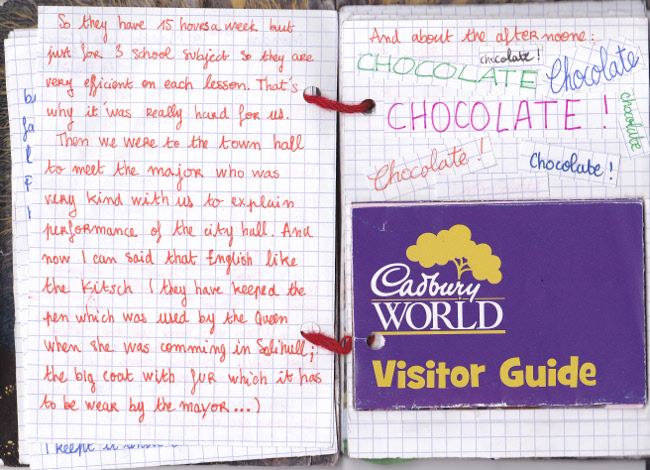 So they have 15 hours a week but
just for 3 school subject so they are
very eficient on each lesson. That's
why it was really hard for us.
Then we were to the town hall
to meet the major who was
very kind with us to explain
performance of the city hall. And
now I can said that English like
the Kitsch (they have keeped the
pen which was used by the Queen
when she was comming in Solihull;
the big coat with fur which it has
to be wear by the mayor...)
I keept it
And about the afternoone:
chocolate!
CHOCOLATE
Chocolate
CHOCOLATE!
chocolate
Chocolate!
Chocolate!
Cadbury
WORLD
Visitor Guide